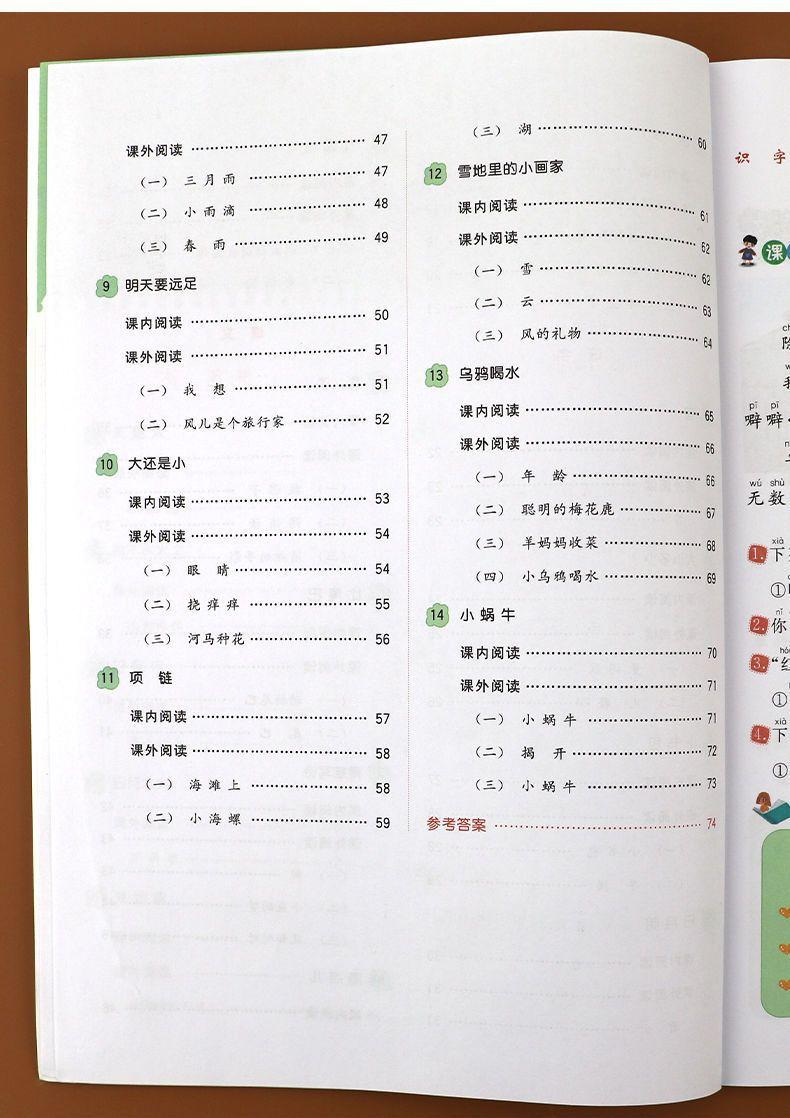 课外阅读 47
（一） 三月雨 47
（二） 小雨滴 48
（三） 春 雨 49
9 明天要远足
课内阅读 50
课外阅读 51
（一） 我 想 51
（二） 风儿是个旅行家 52
10 大还是小
课内阅读 53
课外阅读 54
（一） 眼 睛 54
（二） 挠痒痒 55
（三） 河马种花 56
11 项 链
课内阅读 57
课外阅读 58
（一） 海滩上 58
（二） 小海螺 59
（三） 湖 60
12 雪地里的小画家
课内阅读 61
课外阅读 62
（一） 雪 62
（二） 云 63
（三） 风的礼物 64
13 乌鸦喝水
课内阅读 65
课外阅读 66
（一） 年 龄 66
（二） 聪明的梅花鹿 67
（三） 羊妈妈收菜 68
（四） 小乌鸦喝水 69
14 小蜗牛
课内阅读 70
课外阅读 71
（一） 小蜗牛 71
（二） 揭 开 72
（三） 小蜗牛 73
参考答案 74
识 字
课
pī pī
噼噼
wú shù
无数
xià
1. 下
①
nǐ
2. 你
3. “红
①
xià
4. 下
①